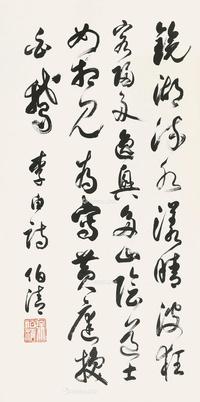 鏡湖流水漾晴波狂
客歸舟逸興多山陰道士
如相見為寫黃庭換
白鵝 李白詩 伯清